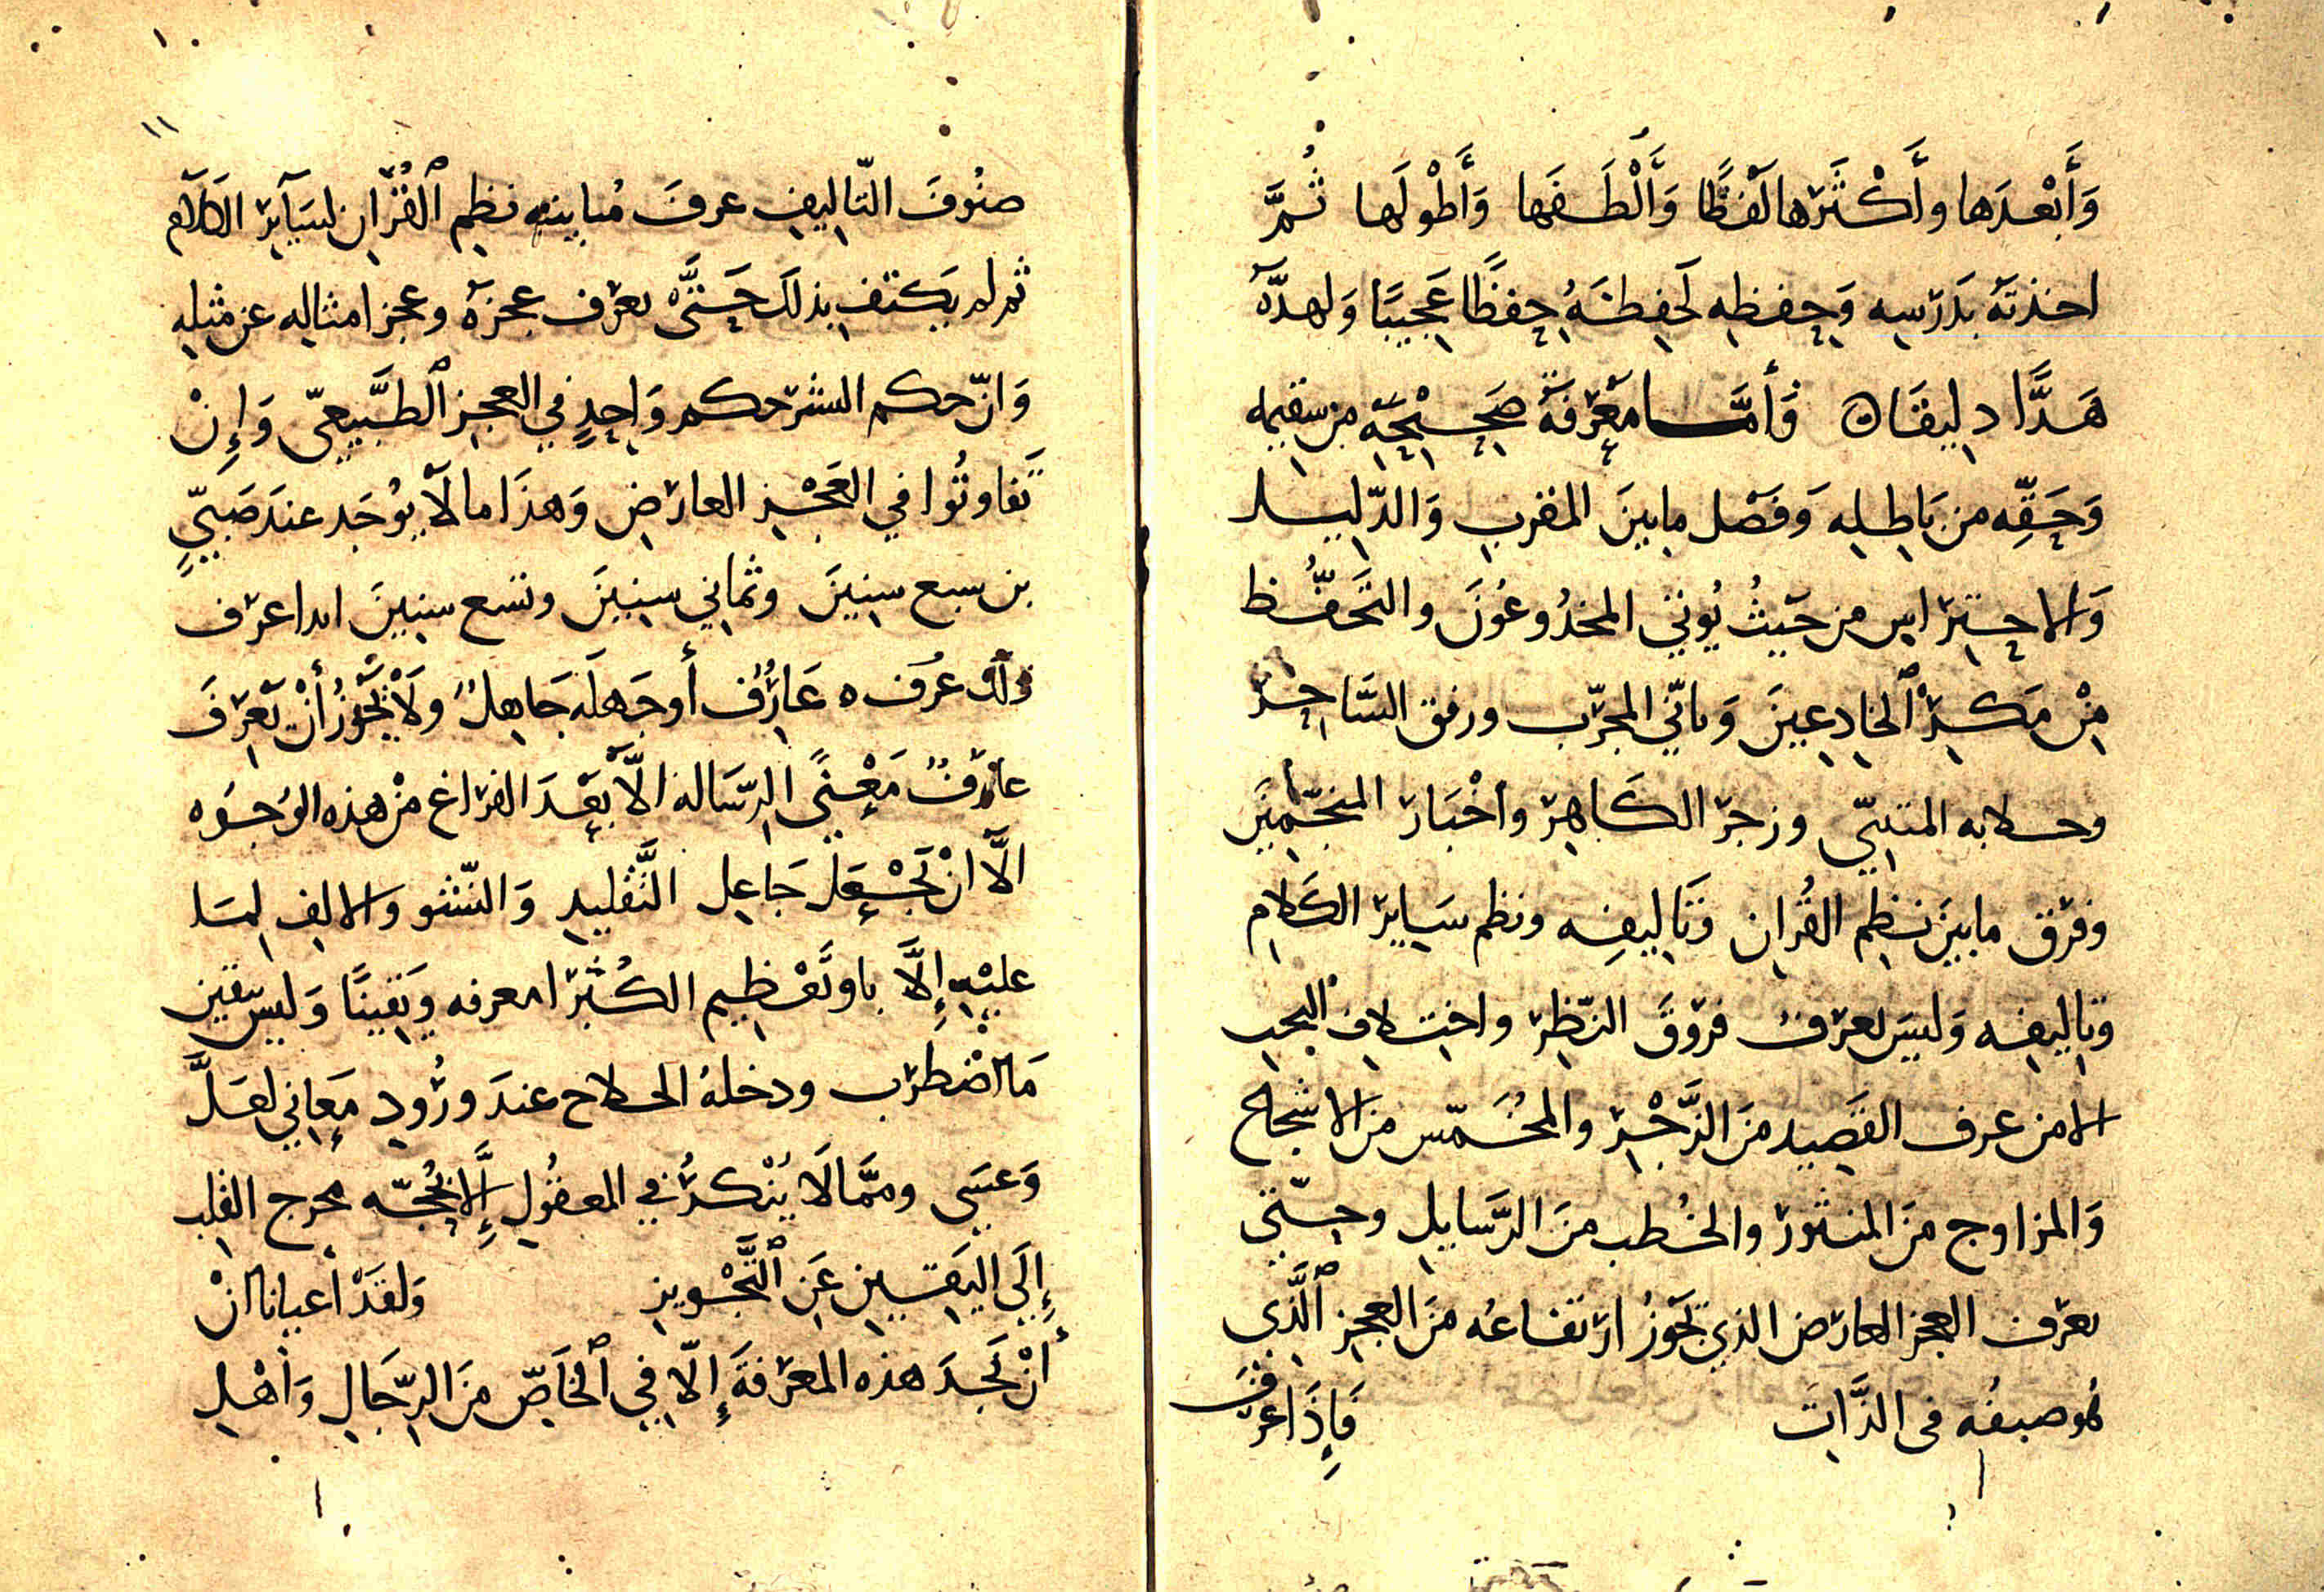 وَأَبْعَدَها وأَكْثَرَها لَفظًا وَأَلْطَفَها وَأَطْولَها ثُمَّ
اخذتَهَ بدَرسِه وَحِفظِه لَحَفِظَهُ حِفظًا عَجِيبًا وَلهدّهَ
هَذًّا دِلِيقًا ه فَأمَّا مَعْرِفَةَ صَحِيْحِه من سقيمه
وَحَقِّه من بَاطِلِه وَفَصْل مابينَ المقرب وَالدّلِيل
وَالاحتِراس من حَيثُ يُوتي المخدُوعُونَ والتَحَفُّظ
مِنْ مَكِرْ ٱلخادِعينَ وَتاتّي المجرّب ورفق السَّاحِر
وخلابه المتنبّي وزجر الكَاهِر وأخْبَار المنجّمينَ
وفرق مابينَ نظِم القُران وَتَالِيفِه ونظم سَايِر الكَلام
وتاليفِه وَليسَ يعرف فروقَ النّظِر واختلاف البحب
الا من عرف القصِيد منَ الرَّجْزِ والمخُمّس منَ الاشجاع
وَالمزاوج منَ المنثورِ والخُطب منَ الرَّسايِلِ وحتّي
يعرف العجز العارض الذي تجَوزُ ارتفاعُه منَ العجز ٱلَّذِي
هُو صِفُه في الذَّاتَ فَإِذَا عرَفَ
١١
صنُوفَ التّاليفِ عرفَ مُباينه نظِم ٱلقُرْان لسَآيِرِ الكَلآمِ
ثم لم يَكتف بذلكَ حَتَّى يعرف عجزَهَ وعجز امثالِه عن مثلِهِ
وَانّ حكم البشر حكم وَاحِدٍ في العجز ٱلطَّبيعِيّ وَإِنْ
تَفاوتُوا في العَجْزِ العارِض وَهذَا مالآ يوُجَد عندَ صَبيّ
بن سبع سِنينَ وثماني سنِينَ وتسع سنِينَ ابدا عرَف
ذلكَ عرَف ه عَارِف أوجَهلَه جَاهِلٌ ولَايَجُوزُ أنْ يَعرِفَ
عارفٌ مَعْنَي الرّسَالة الآَّ بَعْدَ الفراغ مِنْ هذه الوُجوُه
الآَّ انْ تَجْعَل جَاعِل التَّقْليدِ وَالنّشو وَالالفِ لمَا
عليْهِ إلَّا باوتَعْظِيم الكُبَرا معرفه وَيَقِينًا وَليسَ بيَقين
مَااضْطرَب ودخلهُ الخلاج عندَ ورُود مَعَاني لعَلَّ
وَعسَى وممَّا لَا يُنْكرُ في المعقُولِ إِلَّا بحُجّه يخرج القلب
إِلَي اليَقِينِ عَنِ ٱلتَّجْويزِ وَلقَدْ أعيانا انْ
أنْ نَجِدَ هذه المعْرفَةَ إِلّا في ٱلخَاصِّ منَ الرّجَالِ وَأهْلِ